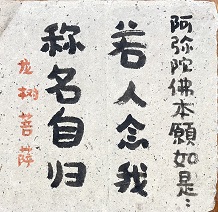 阿弥陀佛本願如是：
若人念我
称名自归
龙树菩萨